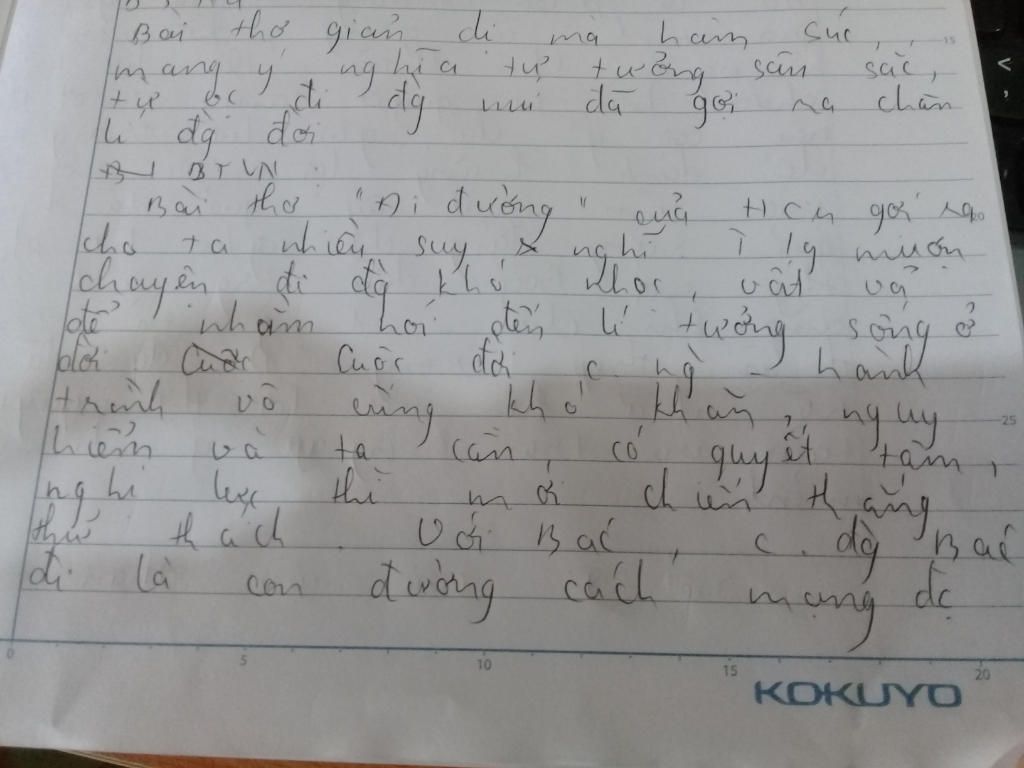 Bài thơ giản dị mà hàm súc,
mang ý nghĩa tư tưởng sâu sắc,
từ đi đg núi đã gợi ra chân
lí đg đời
BTVN
Bài thơ "Đi đường" của HCM gợi ra
cho ta nhiều suy nghĩ. mượn
chuyện đi đg khó khọc, vất vả
để nhằm nói đến lí tưởng sống ở
đời Cuộc Cuộc đời hành
trình vô cùng khó khăn, nguy
hiểm và ta cần có quyết tâm,
nghị lực thì mới chiến thắng
thử thách. Với Bác, c. đg Bác
đi là con đường cách mạng đc
0 5 10 15 20
15
25
KOKUYO